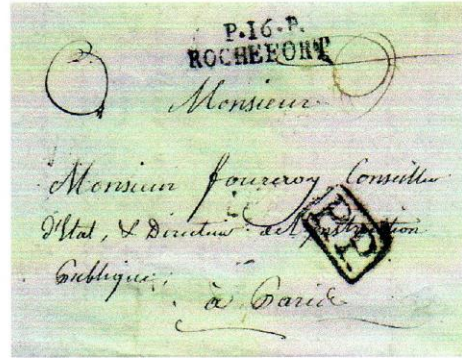 P.16.P.
ROCHEFORT
Monsieur
Monsieur fourcroy Conseiller
d'Etat, & Directeur de l'Instruction
Publique,
à Paris
PP